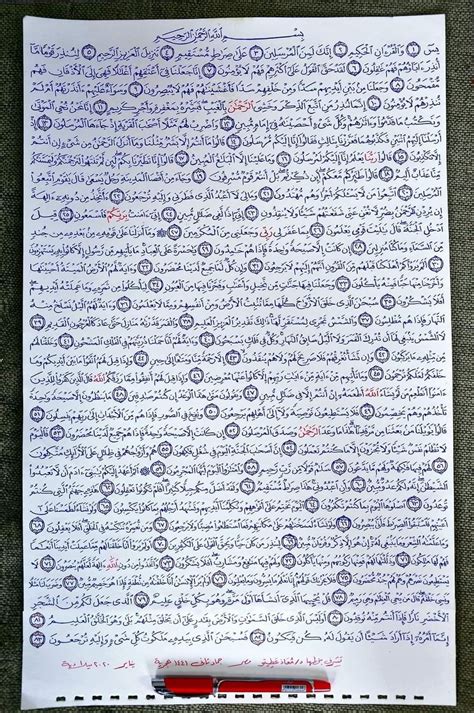 بسم الله الرحمن الرحيم
يس ١ والقرءان الحكيم ٢ إنك لمن المرسلين ٣ على صراط مستقيم ٤ تنزيل العزيز الرحيم ٥ لتنذر قوما ما
أنذر ءاباؤهم فهم غافلون ٦ لقد حق القول على أكثرهم فهم لا يؤمنون ٧ إنا جعلنا في أعناقهم أغلالا فهي إلى الأذقان فهم
مقمحون ٨ وجعلنا من بين أيديهم سدا ومن خلفهم سدا فأغشيناهم فهم لا يبصرون ٩ وسواء عليهم ءأنذرتهم أم لم
تنذرهم لا يؤمنون ١٠ إنما تنذر من اتبع الذكر وخشي الرحمن بالغيب فبشره بمغفرة وأجر كريم ١١ إنا نحن نحي الموتى
ونكتب ما قدموا وءاثارهم وكل شيء أحصيناه في إمام مبين ١٢ واضرب لهم مثلا أصحاب القرية إذ جاءها المرسلون ١٣ إذ
أرسلنا إليهم اثنين فكذبوهما فعززنا بثالث فقالوا إنا إليكم مرسلون ١٤ قالوا ما أنتم إلا بشر مثلنا وما أنزل الرحمن من شيء إن أنتم
إلا تكذبون ١٥ قالوا ربنا يعلم إنا إليكم لمرسلون ١٦ وما علينا إلا البلاغ المبين ١٧ قالوا إنا تطيرنا بكم لئن لم تنتهوا لنرجمنكم وليمسنكم
منا عذاب أليم ١٨ قالوا طائركم معكم أئن ذكرتم بل أنتم قوم مسرفون ١٩ وجاء من أقصا المدينة رجل يسعى قال يا قوم اتبعوا
المرسلين ٢٠ اتبعوا من لا يسألكم أجرا وهم مهتدون ٢١ وما لي لا أعبد الذي فطرني وإليه ترجعون ٢٢ ءأتخذ من دونه ءالهة
إن يردن الرحمن بضر لا تغن عني شفاعتهم شيئا ولا ينقذون ٢٣ إني إذا لفي ضلال مبين ٢٤ إني ءامنت بربكم فاسمعون ٢٥ قيل
ادخل الجنة قال يا ليت قومي يعلمون ٢٦ بما غفر لي ربي وجعلني من المكرمين ٢٧ وما أنزلنا على قومه من بعده من جند
من السماء وما كنا منزلين ٢٨ إن كانت إلا صيحة واحدة فإذا هم خامدون ٢٩ يا حسرة على العباد ما يأتيهم من رسول إلا كانوا به يستهزءون
٣٠ ألم يروا كم أهلكنا قبلهم من القرون أنهم إليهم لا يرجعون ٣١ وإن كل لما جميع لدينا محضرون ٣٢ وءاية لهم الأرض الميتة أحييناها
وأخرجنا منها حبا فمنه يأكلون ٣٣ وجعلنا فيها جنات من نخيل وأعناب وفجرنا فيها من العيون ٣٤ ليأكلوا من ثمره وما عملته أيديهم
أفلا يشكرون ٣٥ سبحان الذي خلق الأزواج كلها مما تنبت الأرض ومن أنفسهم ومما لا يعلمون ٣٦ وءاية لهم الليل نسلخ منه
النهار فإذا هم مظلمون ٣٧ والشمس تجري لمستقر لها ذلك تقدير العزيز العليم ٣٨ والقمر قدرناه منازل حتى عاد كالعرجون القديم ٣٩
لا الشمس ينبغي لها أن تدرك القمر ولا الليل سابق النهار وكل في فلك يسبحون ٤٠ وءاية لهم أنا حملنا ذريتهم في الفلك المشحون ٤١ وخلقنا لهم
من مثله ما يركبون ٤٢ وإن نشأ نغرقهم فلا صريخ لهم ولا هم ينقذون ٤٣ إلا رحمة منا ومتاعا إلى حين ٤٤ وإذا قيل لهم اتقوا ما بين أيديكم وما
خلفكم لعلكم ترحمون ٤٥ وما تأتيهم من ءاية من ءايات ربهم إلا كانوا عنها معرضين ٤٦ وإذا قيل لهم أنفقوا مما رزقكم الله قال الذين كفروا للذين
ءامنوا أنطعم من لو يشاء الله أطعمه إن أنتم إلا في ضلال مبين ٤٧ ويقولون متى هذا الوعد إن كنتم صادقين ٤٨ ما ينظرون إلا صيحة واحدة
تأخذهم وهم يخصمون ٤٩ فلا يستطيعون توصية ولا إلى أهلهم يرجعون ٥٠ ونفخ في الصور فإذا هم من الأجداث إلى ربهم ينسلون ٥١
قالوا يا ويلنا من بعثنا من مرقدنا هذا ما وعد الرحمن وصدق المرسلون ٥٢ إن كانت إلا صيحة واحدة فإذا هم جميع لدينا محضرون ٥٣ فاليوم
لا تظلم نفس شيئا ولا تجزون إلا ما كنتم تعملون ٥٤ إن أصحاب الجنة اليوم في شغل فاكهون ٥٥ هم وأزواجهم في ظلال على الأرائك متكئون
٥٦ لهم فيها فاكهة ولهم ما يدعون ٥٧ سلام قولا من رب رحيم ٥٨ وامتازوا اليوم أيها المجرمون ٥٩ ألم أعهد إليكم يا بني ءادم أن لا تعبدوا
الشيطان إنه لكم عدو مبين ٦٠ وأن اعبدوني هذا صراط مستقيم ٦١ ولقد أضل منكم جبلا كثيرا أفلم تكونوا تعقلون ٦٢ هذه جهنم التي كنتم
توعدون ٦٣ اصلوها اليوم بما كنتم تكفرون ٦٤ اليوم نختم على أفواههم وتكلمنا أيديهم وتشهد أرجلهم بما كانوا يكسبون ٦٥ ولو نشاء لطمسنا على
أعينهم فاستبقوا الصراط فأنى يبصرون ٦٦ ولو نشاء لمسخناهم على مكانتهم فما استطاعوا مضيا ولا يرجعون ٦٧ ومن نعمره ننكسه في الخلق أفلا يعقلون ٦٨
وما علمناه الشعر وما ينبغي له إن هو إلا ذكر وقرءان مبين ٦٩ لينذر من كان حيا ويحق القول على الكافرين ٧٠ أولم يروا أنا خلقنا لهم مما عملت أيدينا أنعاما
فهم لها مالكون ٧١ وذللناها لهم فمنها ركوبهم ومنها يأكلون ٧٢ ولهم فيها منافع ومشارب أفلا يشكرون ٧٣ واتخذوا من دون الله ءالهة لعلهم ينصرون ٧٤ لا
يستطيعون نصرهم وهم لهم جند محضرون ٧٥ فلا يحزنك قولهم إنا نعلم ما يسرون وما يعلنون ٧٦ أولم ير الإنسان أنا خلقناه من نطفة فإذا هو خصيم مبين ٧٧
وضرب لنا مثلا ونسي خلقه قال من يحي العظام وهي رميم ٧٨ قل يحييها الذي أنشأها أول مرة وهو بكل خلق عليم ٧٩ الذي جعل لكم من الشجر
الأخضر نارا فإذا أنتم منه توقدون ٨٠ أوليس الذي خلق السماوات والأرض بقادر على أن يخلق مثلهم بلى وهو الخلاق العليم ٨١
إنما أمره إذا أراد شيئا أن يقول له كن فيكون ٨٢ فسبحان الذي بيده ملكوت كل شيء وإليه ترجعون ٨٣
مصر ١٤٤١ هجرية يناير ٢٠٢٠ ميلادية